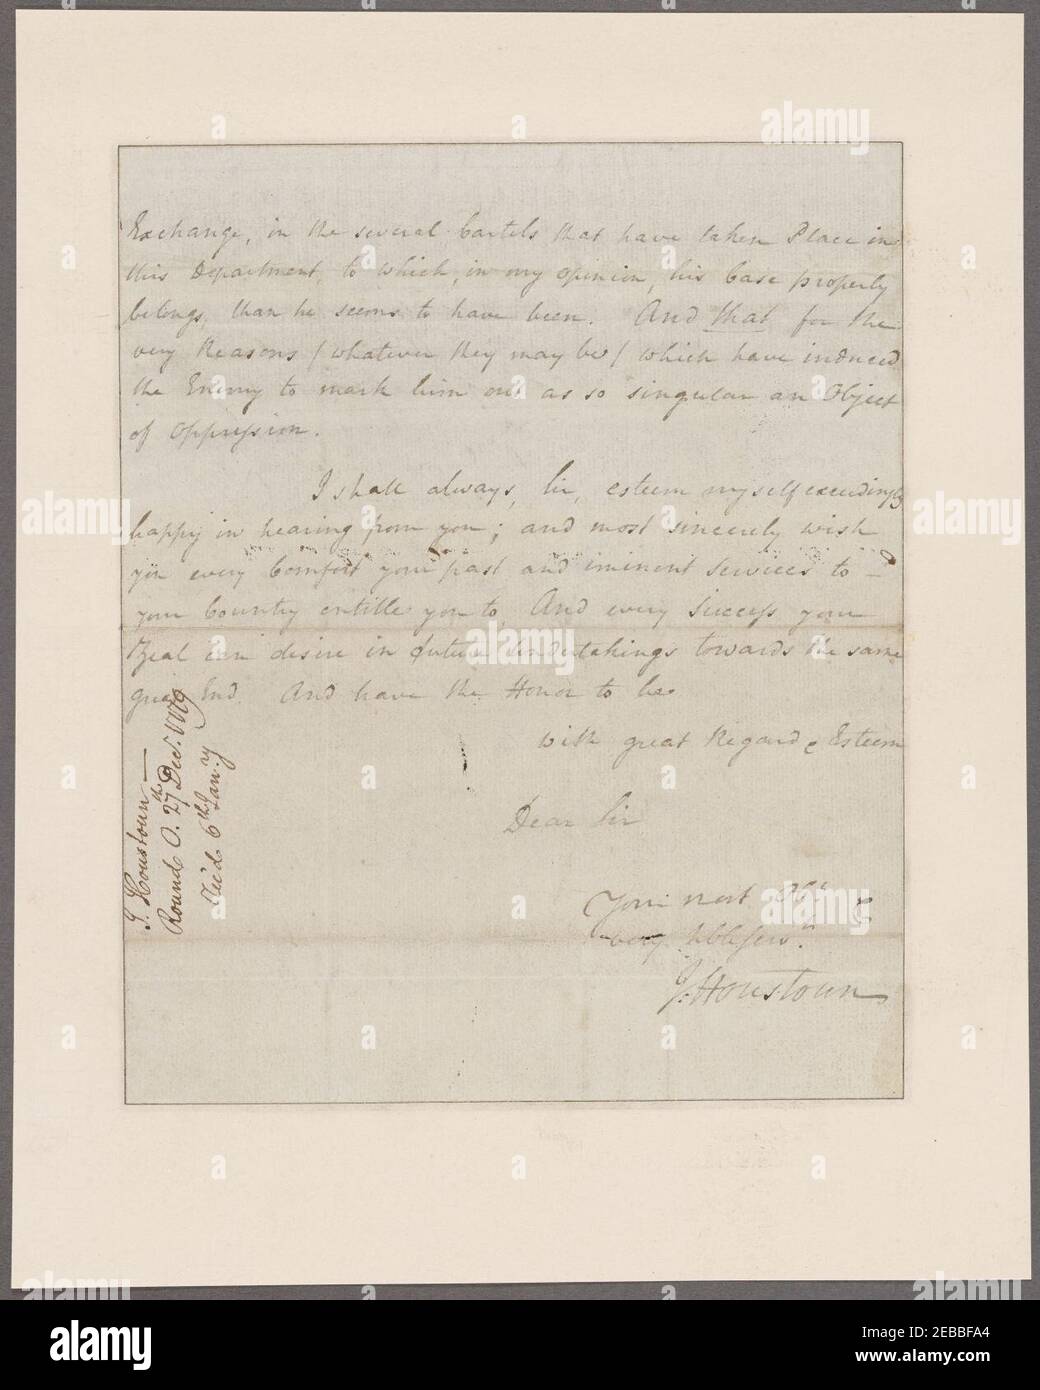 Exchange, in the several Cartels that have taken Place in
this Department, to which, in my opinion, his Case properly
belongs, than he seems to have been. And that for the
very Reasons / whatever they may be / which have induced
the Enemy to mark him out as so singular an Object
of oppression.
I shall always, Sir, esteem myself exceedingly
happy in hearing from you; and most sincerely wish
you every Comfort your past and iminent Services to –
your Country entitles you to, And every Success your
Zeal can desire in future Undertakings towards the same
great End. And have the Honor to be
with great Regard & Esteem
Dear Sir
Your most Obt &
very hble servt
J. Houstoun
J. Houstoun —
Round O. 27th Decr. 1779
Rec'd 6th Jany
alamy
alamy
alamy
Image ID: 2EBBFA4
www.alamy.com